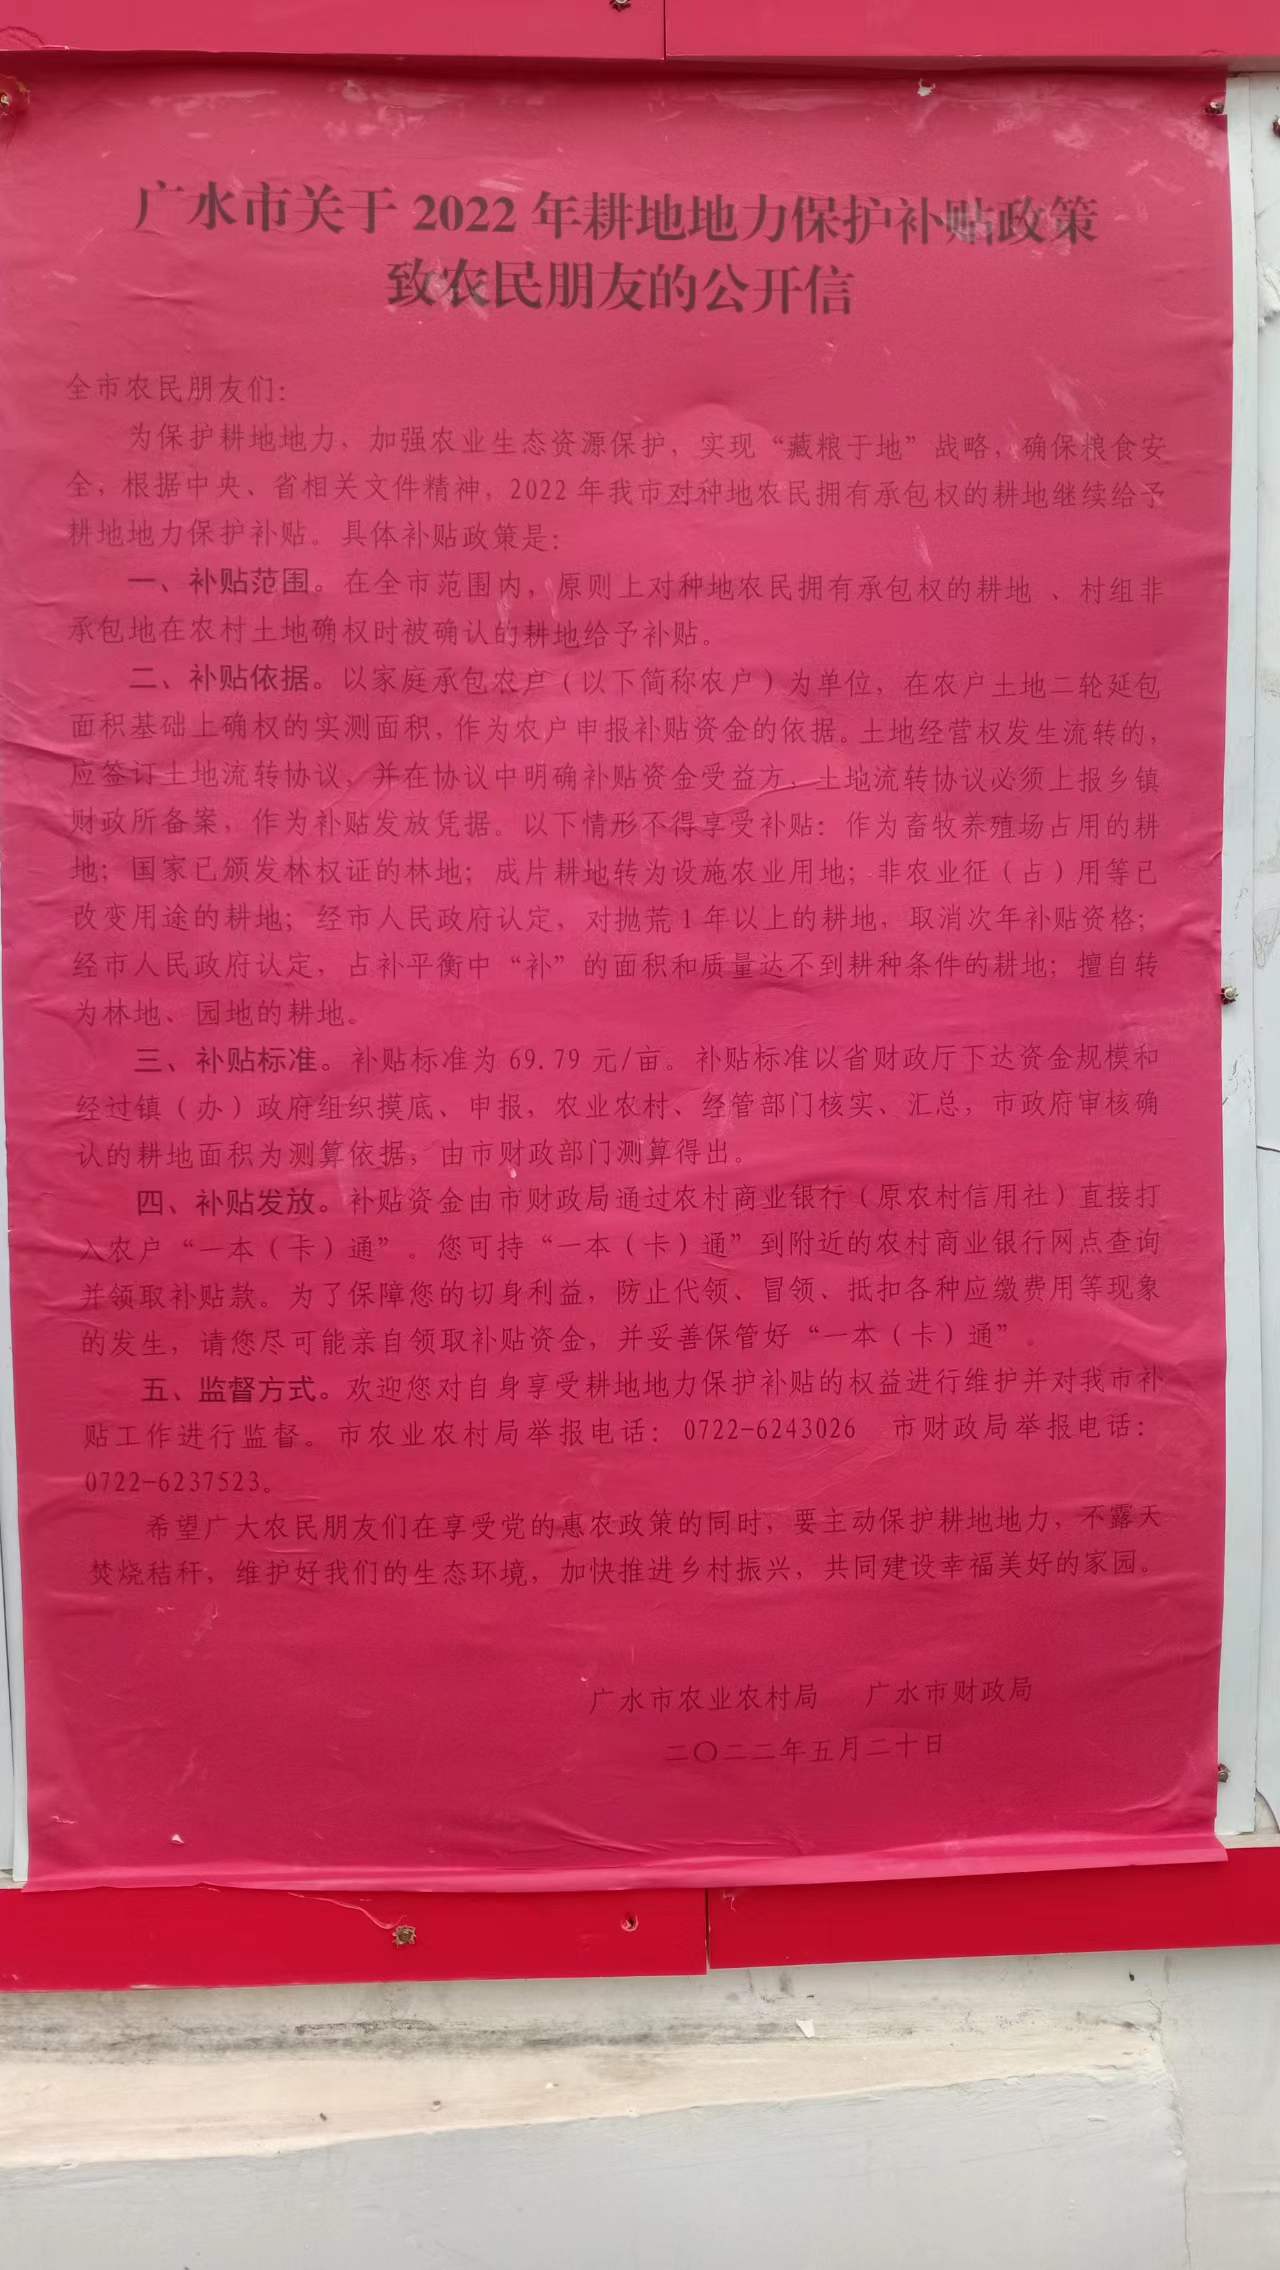 广水市关于 2022 年耕地地力保护补贴政策
致农民朋友的公开信
全市农民朋友们：
为保护耕地地力，加强农业生态资源保护，实现“藏粮于地”战略，确保粮食安
全，根据中央、省相关文件精神，2022 年我市对种地农民拥有承包权的耕地继续给予
耕地地力保护补贴。具体补贴政策是：
一、补贴范围。在全市范围内，原则上对种地农民拥有承包权的耕地 、村组非
承包地在农村土地确权时被确认的耕地给予补贴。
二、补贴依据。以家庭承包农户（以下简称农户）为单位，在农户土地二轮延包
面积基础上确权的实测面积，作为农户申报补贴资金的依据。土地经营权发生流转的，
应签订土地流转协议，并在协议中明确补贴资金受益方，土地流转协议必须上报乡镇
财政所备案，作为补贴发放凭据。以下情形不得享受补贴：作为畜牧养殖场占用的耕
地；国家已颁发林权证的林地；成片耕地转为设施农业用地；非农业征（占）用等已
改变用途的耕地；经市人民政府认定，对抛荒 1 年以上的耕地，取消次年补贴资格；
经市人民政府认定，占补平衡中“补”的面积和质量达不到耕种条件的耕地；擅自转
为林地、园地的耕地。
三、补贴标准。补贴标准为 69.79 元/亩。补贴标准以省财政厅下达资金规模和
经过镇（办）政府组织摸底、申报，农业农村、经管部门核实、汇总，市政府审核确
认的耕地面积为测算依据，由市财政部门测算得出。
四、补贴发放。补贴资金由市财政局通过农村商业银行（原农村信用社）直接打
入农户“一本（卡）通”。您可持“一本（卡）通”到附近的农村商业银行网点查询
并领取补贴款。为了保障您的切身利益，防止代领、冒领、抵扣各种应缴费用等现象
的发生，请您尽可能亲自领取补贴资金，并妥善保管好“一本（卡）通”。
五、监督方式。欢迎您对自身享受耕地地力保护补贴的权益进行维护并对我市补
贴工作进行监督。市农业农村局举报电话：0722-6243026 市财政局举报电话：
0722-6237523。
希望广大农民朋友们在享受党的惠农政策的同时，要主动保护耕地地力，不露天
焚烧秸秆，维护好我们的生态环境，加快推进乡村振兴，共同建设幸福美好的家园。
广水市农业农村局 广水市财政局
二〇二二年五月二十日